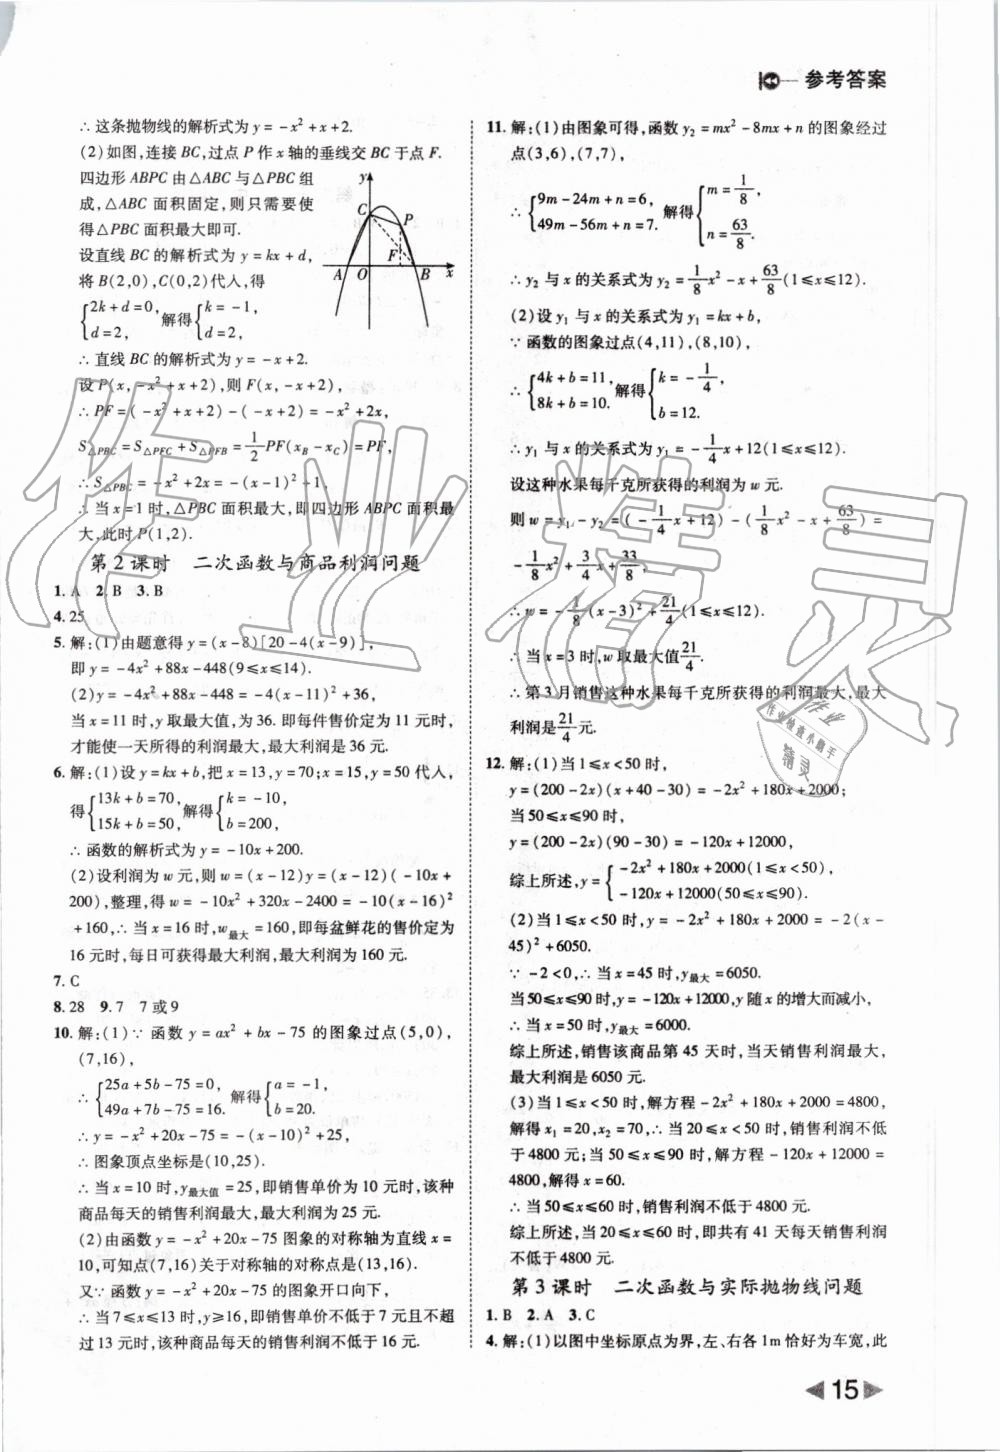 参考答案
∴这条抛物线的解析式为y=-x²+x+2.
(2)如图,连接BC,过点P作x轴的垂线交BC于点F.
四边形ABPC由△ABC与△PBC组
成,△ABC面积固定,则只需要使
得△PBC面积最大即可.
设直线BC的解析式为y=kx+d,
将B(2,0),C(0,2)代入,得
{2k+d=0, d=2, 解得{k=-1, d=2,
y C P F A O B x
∴直线BC的解析式为y=-x+2.
设P(x,-x²+x+2),则F(x,-x+2),
∴PF=(-x²+x+2)-(-x+2)=-x²+2x,
S△PBC=S△PFC+S△PFB=1/2PF(xB-xC)=PF,
∴S△PBC=-x²+2x=-(x-1)²+1,
∴当x=1时,△PBC面积最大,即四边形ABPC面积最
大,此时P(1,2).
第2课时 二次函数与商品利润问题
1.A 2.B 3.B
4.25
5.解:(1)由题意得y=(x-8)[20-4(x-9)],
即y=-4x²+88x-448(9≤x≤14).
(2)y=-4x²+88x-448=-4(x-11)²+36,
当x=11时,y取最大值,为36.即每件售价定为11元时,
才能使一天所得的利润最大,最大利润是36元.
6.解:(1)设y=kx+b,把x=13,y=70;x=15,y=50代入,
得{13k+b=70, 15k+b=50, 解得{k=-10, b=200,
∴函数的解析式为y=-10x+200.
(2)设利润为w元,则w=(x-12)y=(x-12)(-10x+
200),整理,得w=-10x²+320x-2400=-10(x-16)²
+160,∴当x=16时,w最大=160,即每盆鲜花的售价定为
16元时,每日可获得最大利润,最大利润为160元.
7.C
8.28 9.7 7或9
10.解:(1)∵函数y=ax²+bx-75的图象过点(5,0),
(7,16),
∴{25a+5b-75=0, 49a+7b-75=16. 解得{a=-1, b=20.
∴y=-x²+20x-75=-(x-10)²+25,
∴图象顶点坐标是(10,25).
∴当x=10时,y最大值=25,即销售单价为10元时,该种
商品每天的销售利润最大,最大利润为25元.
(2)由函数y=-x²+20x-75图象的对称轴为直线x=
10,可知点(7,16)关于对称轴的对称点是(13,16).
又∵函数y=-x²+20x-75的图象开口向下,
∴当7≤x≤13时,y≥16,即销售单价不低于7元且不超
过13元时,该种商品每天的销售利润不低于16元.
11.解:(1)由图象可得,函数y₂=mx²-8mx+n的图象经过
点(3,6),(7,7),
∴{9m-24m+n=6, 49m-56m+n=7. 解得{m=1/8, n=63/8.
∴y₂与x的关系式为y₂=1/8x²-x+63/8(1≤x≤12).
(2)设y₁与x的关系式为y₁=kx+b,
∵函数的图象过点(4,11),(8,10),
∴{4k+b=11, 8k+b=10. 解得{k=-1/4, b=12.
∴y₁与x的关系式为y₁=-1/4x+12(1≤x≤12).
设这种水果每千克所获得的利润为w元.
则w=y₁-y₂=(-1/4x+12)-(1/8x²-x+63/8)=
-1/8x²+3/4x+33/8,
∴w=-1/8(x-3)²+21/4(1≤x≤12).
∴当x=3时,w取最大值21/4.
∴第3月销售这种水果每千克所获得的利润最大,最大
利润是21/4元.
12.解:(1)当1≤x<50时,
y=(200-2x)(x+40-30)=-2x²+180x+2000;
当50≤x≤90时,
y=(200-2x)(90-30)=-120x+12000,
综上所述,y={-2x²+180x+2000(1≤x<50), -120x+12000(50≤x≤90).
(2)当1≤x<50时,y=-2x²+180x+2000=-2(x-
45)²+6050.
∵-2<0,∴当x=45时,y最大=6050.
当50≤x≤90时,y=-120x+12000,y随x的增大而减小,
∴当x=50时,y最大=6000.
综上所述,销售该商品第45天时,当天销售利润最大,
最大利润是6050元.
(3)当1≤x<50时,解方程-2x²+180x+2000=4800,
解得x₁=20,x₂=70,∴当20≤x<50时,销售利润不低
于4800元;当50≤x≤90时,解方程-120x+12000=
4800,解得x=60.
∴当50≤x≤60时,销售利润不低于4800元.
综上所述,当20≤x≤60时,即共有41天每天销售利润
不低于4800元.
第3课时 二次函数与实际抛物线问题
1.B 2.A 3.C
4.解:(1)以图中坐标原点为界,左、右各1m恰好为车宽,此
15
作业精灵
作业
作业检查小助手
精灵